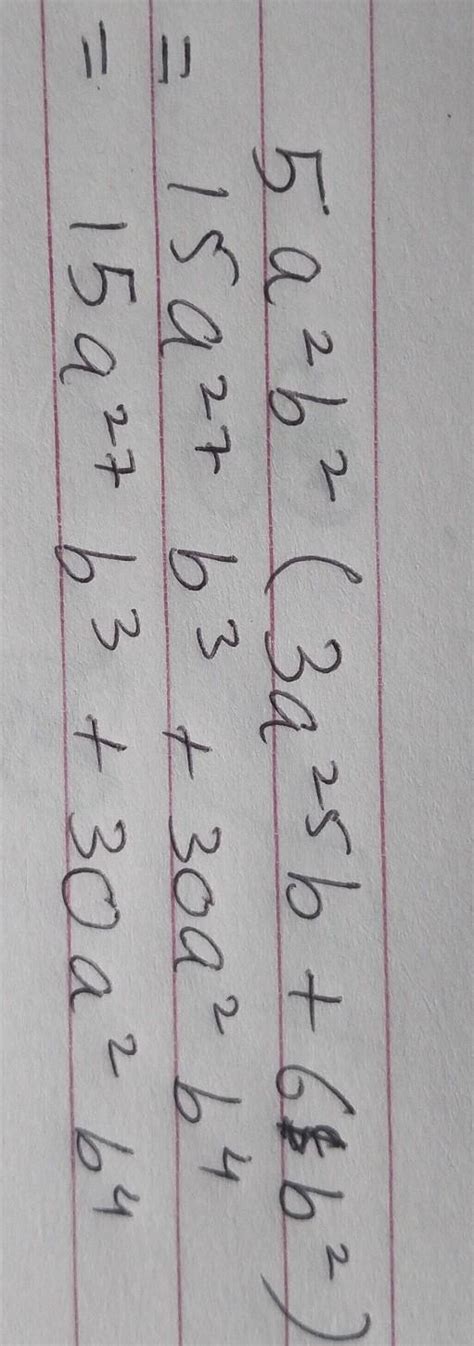 5a²b² (3a²⁵b + 6b²)
= 15a²⁷ b³ + 30a² b⁴
= 15a²⁷ b³ + 30a² b⁴